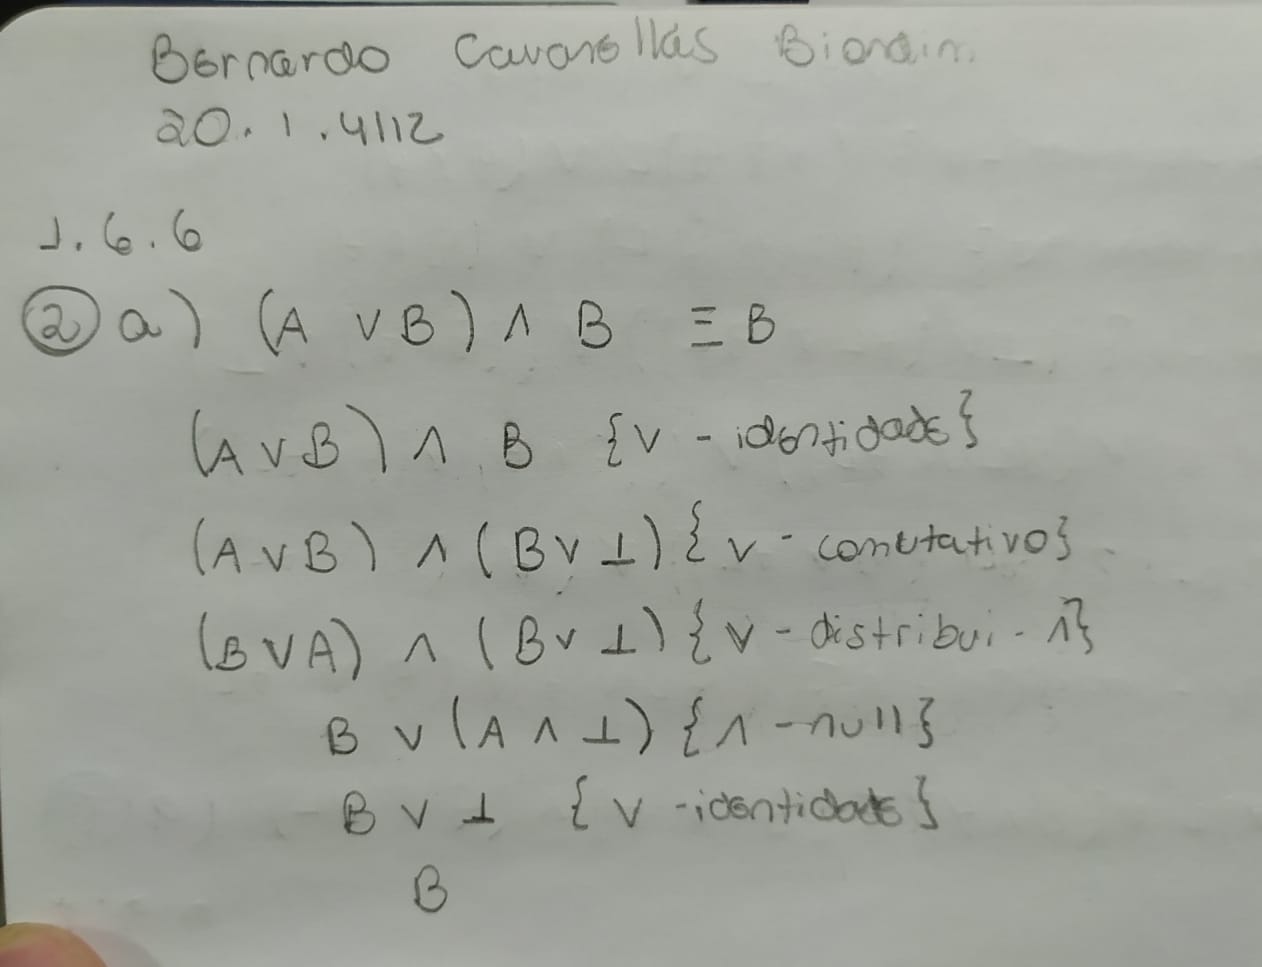 Bernardo Cavanellas Biondin
20.1.4112
1.6.6
② a) (A ∨ B) ∧ B ≡ B
(A ∨ B) ∧ B {∨ - identidade}
(A ∨ B) ∧ (B ∨ ⊥) {∨ - comutativo}
(B ∨ A) ∧ (B ∨ ⊥) {∨ - distribui - ∧}
B ∨ (A ∧ ⊥) {∧ - null}
B ∨ ⊥ {∨ - identidade}
B